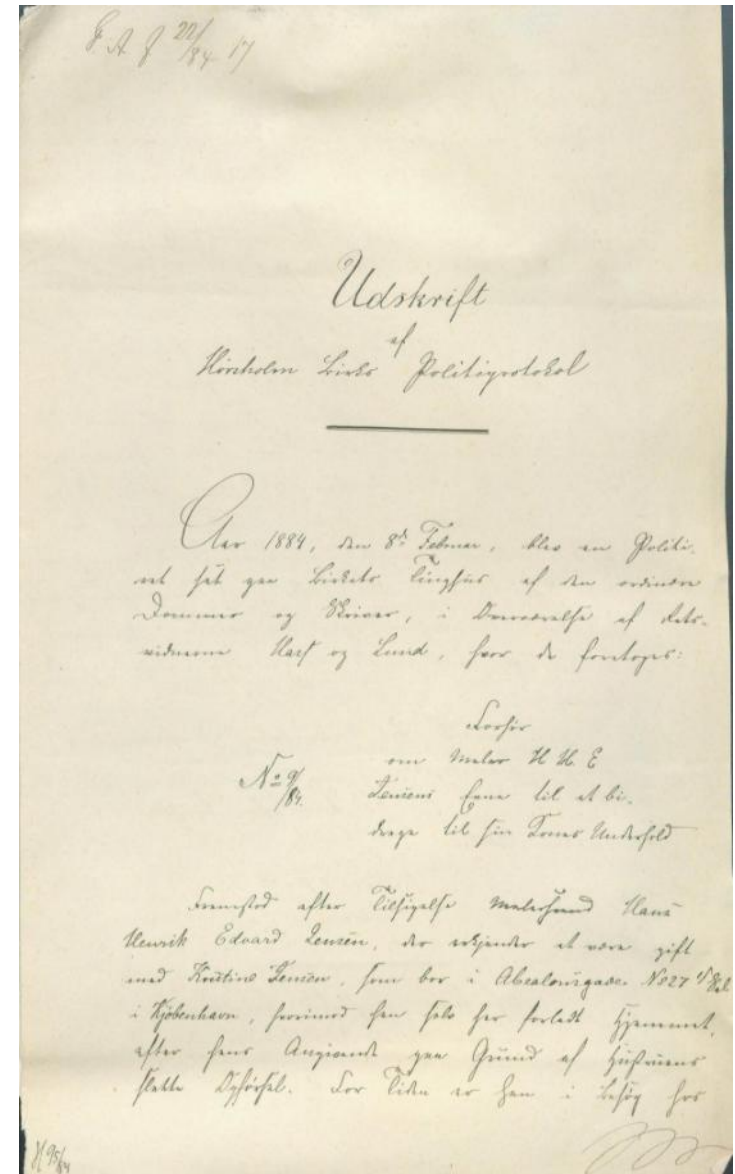 F. A. J 22/84 17
Udskrift
af
Hørsholm Birks Politiprotokol
Aar 1884, den 8de Februar, blev en Politi-
ret sat paa Birkets Tinghus af den ordinære
Dommer og Skriver, i Overværelse af Rets-
vidnerne Harf og Lund, hvor da foretoges:
Forhør
No 9/84.
om Maler H H. E
Jensens Evne til at bi-
drage til sin Kones Underhold
Fremstod efter Tilsigelse Malersvend Hans
Henrik Edvard Jensen, der erkjender at være gift
med Kristine Jensen, som bor i Absalonsgade No 27
i Kjøbenhavn, hvorimod han selv har forladt Hjemmet,
efter hans Angivende paa Grund af Hustruens
slette Opførsel. For Tiden er han i Besøg hos